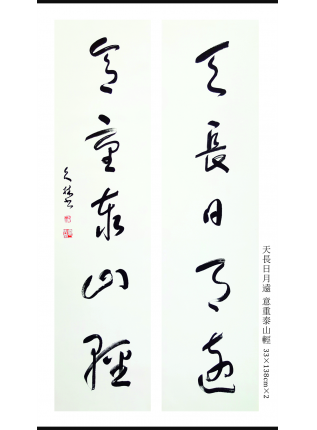 天長日月遠
意重泰山輕
久林書
天長日月遠 意重泰山輕 33×138cm×2